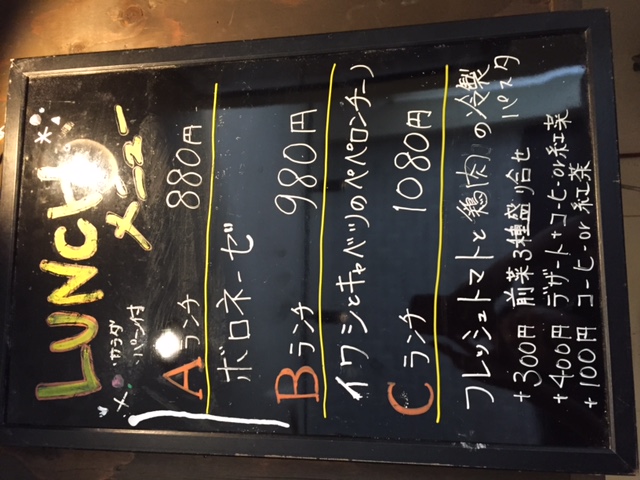 LUNCH
メニュー
サラダ
パン付
Aランチ 880円
ボロネーゼ
Bランチ 980円
イワシとキャベツのペペロンチーノ
Cランチ 1080円
フレッシュトマトと鶏肉の冷製
パスタ
+300円 前菜3種盛り合せ
+400円 デザート+コーヒーor紅茶
+100円 コーヒーor紅茶